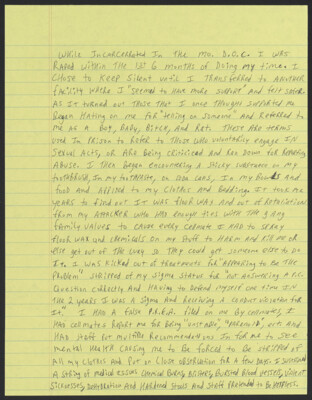 While Incarcerated In The MO. D.O.C. I was
Raped within The 1st 6 months of Doing my time. I
Chose to Keep Silent until I Transferred to Another
facility where I "Seemed to have more support" and felt safer.
As It turned out Those that I once Thought supported me
Began Hating on me for "telling on someone" and Referred to
me as a Boy, Baby, Bitch, and Rat. These are terms
used In Prison to Refer to Those who voluntarily engage In
Sexual Acts, or Are Being criticized and Ran Down for Reporting
Abuse. I then Began encountering a sticky substance on my
toothbrush, In my toothpaste, on soda cans, In my Bowls and
food and Affixed to my Clothes and Bedding. It took me
years to find out It was floor wax and out of Retaliation
from my Attacker who Has enough ties with The gang
family values to cause every Cellmate I Had to spray
floor wax and chemicals on my stuff to Harm and Kill me or
else get out of the way so They could get someone else to do
It. I was Kicked out of treatments for "Appearing to Be The
Problem", stripped of my Sigma Status for "not answering a
Question correctly And Having to Defend myself one time In
The 2 years I was a Sigma and Receiving a conduct violation for
It." I Had a false P.R.E.A. filed on me By cellmates, I
Had cellmates Report me for Being "unstable", "Paranoid", etc and
Had staff put multiple Recommendations In for me to see
mental Health causing me to Be forced to Be stripped of
all my clothes and Put on Close observation for a few Days. I sustained
a string of medical issues Chemical Burns, Blisters, Bursted Blood Vessels, violent
Sicknesses, Dehydration And Hardened Stools And Staff Pretended to Be Helpless.